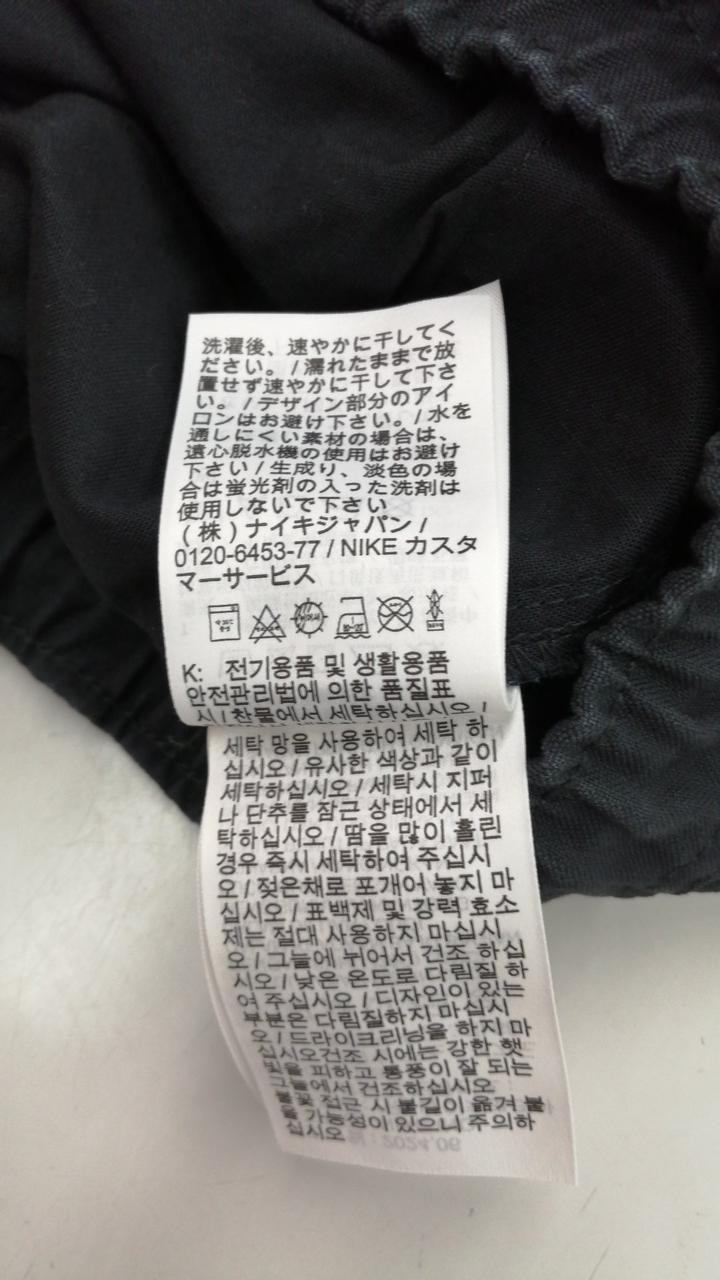 洗濯後、速やかに干してく
ださい。 / 濡れたままで放
置せず速やかに干して下さ
い。 / デザイン部分のアイ
ロンはお避け下さい。 / 水を
通しにくい素材の場合は、
遠心脱水機の使用はお避け
下さい / 生成り、淡色の場
合は蛍光剤の入った洗剤は
使用しないで下さい
(株) ナイキジャパン /
0120-6453-77 / NIKE カスタ
マーサービス
K: 전기용품 및 생활용품
안전관리법에 의한 품질표
시 / 찬물에서 세탁하십시오 /
세탁 망을 사용하여 세탁 하
십시오 / 유사한 색상과 같이
세탁하십시오 / 세탁시 지퍼
나 단추를 잠근 상태에서 세
탁하십시오 / 땀을 많이 흘린
경우 즉시 세탁하여 주십시
오 / 젖은채로 포개어 놓지 마
십시오 / 표백제 및 강력 효소
제는 절대 사용하지 마십시
오 / 그늘에 뉘어서 건조 하십
시오 / 낮은 온도로 다림질 하
여 주십시오 / 디자인이 있는
부분은 다림질하지 마십시
오 / 드라이크리닝을 하지 마
십시오건조 시에는 강한 햇
빛을 피하고 통풍이 잘 되는
그늘에서 건조하십시오
불꽃 접근 시 불길이 옮겨 붙
을 가능성이 있으니 주의하
십시오